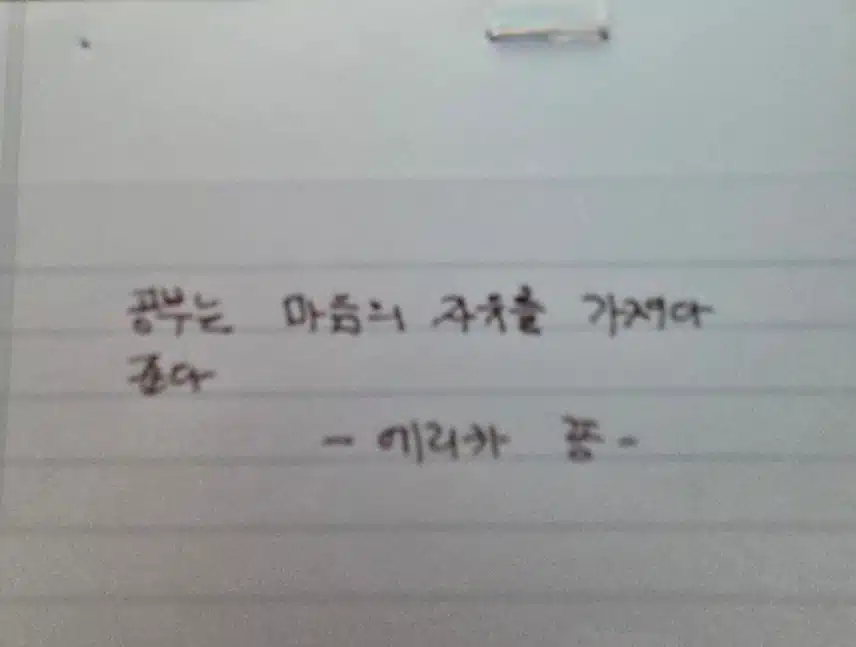 공부는 마음의 자유를 가져다
준다
- 에리카 종 -